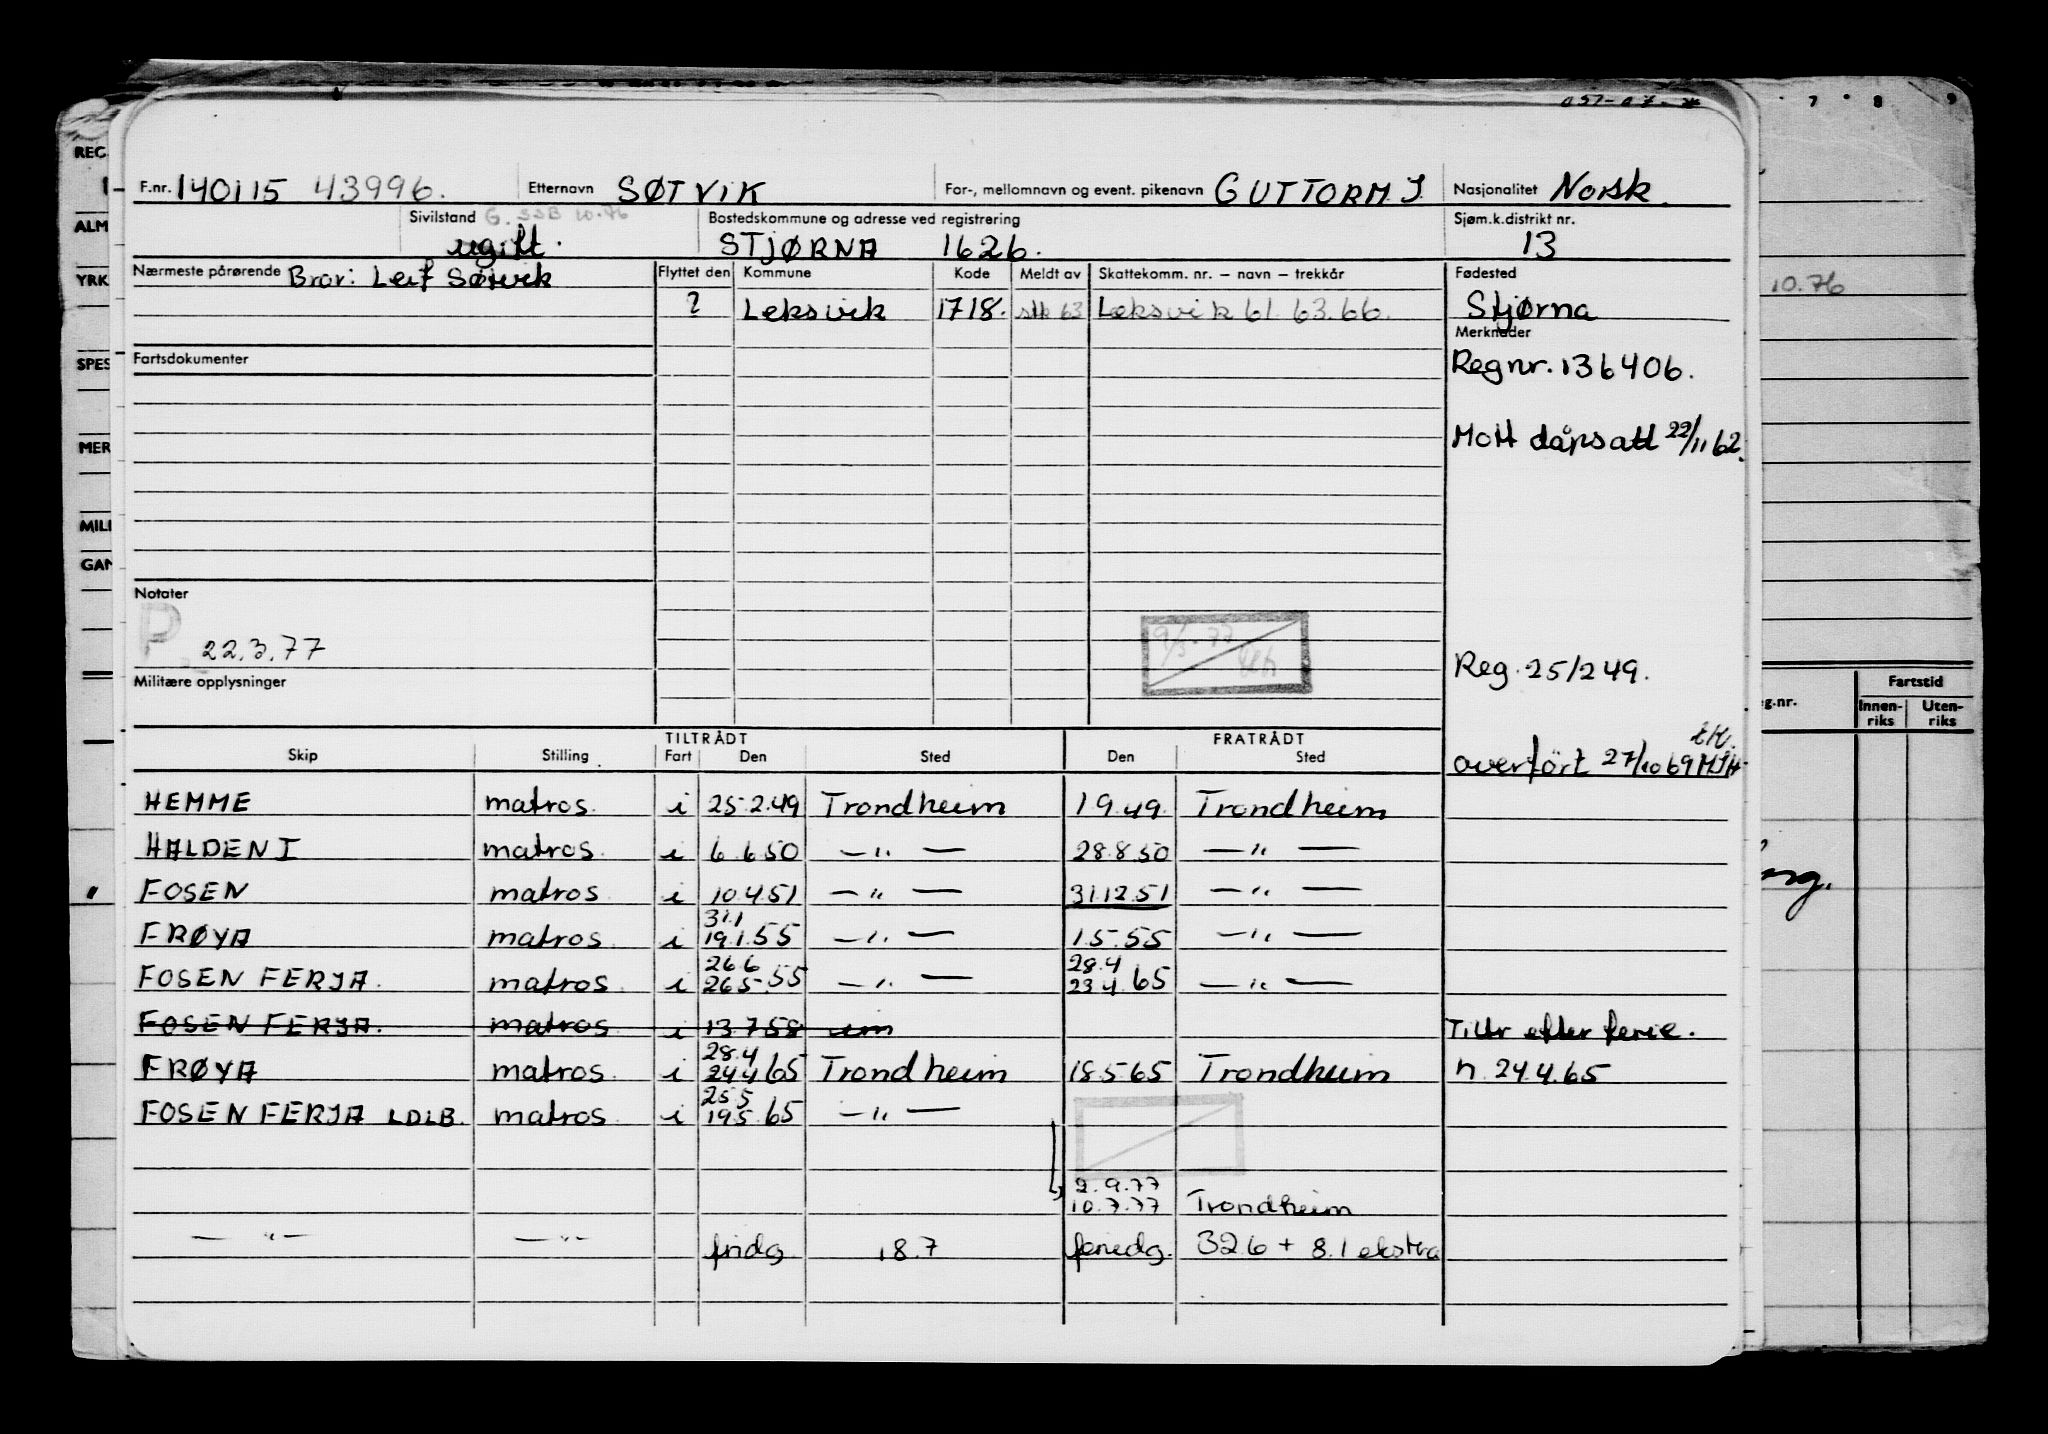 7 8 9
REG.
F.nr. 140115 43996. Etternavn SØTVIK For-, mellomnavn og event. pikenavn GUTTORM J Nasjonalitet Norsk.
ALM
Sivilstand G. SSB 10.76 Bostedskommune og adresse ved registrering Sjøm.k.distrikt nr.
ugift. STJØRNA 1626. 13
YRK
Nærmeste pårørende Bror: Leif Søtvik Flyttet den Kommune Kode Meldt av Skattekomm. nr. – navn – trekkår Fødested
10.76
? Leksvik 1718. 63 Leksvik 61. 63. 66. Stjørna
Merknader
SPES
Fartsdokumenter
Regnr. 136406.
MER
Mott dåpsatt 22/11 62.
MILI
GAN
Notater
P 22.3.77
9/3-77
Reg. 25/249.
Militære opplysninger
Fartstid
g.nr. Innen-riks Uten-riks
TILTRÅDT FRATRÅDT
Skip Stilling Fart Den Sted Den Sted
overført 27/10 69
HEMME matros. i 25.2.49 Trondheim 1.9.49. Trondheim
HALDEN I matros. i 6.6.50 — " — 28.8.50 — " —
FOSEN matros. i 10.4.51 — " — 31.12.51 — " —
31.1
FRØYA matros. i 19.1.55 — " — 1.5.55 — " —
26.6 28.4
FOSEN FERJA. matros. i 26.5.55 — " — 23.4.65 — " —
FOSEN FERJA. matros. i 13.7.58 um Tiltr efter ferie.
28.4
FRØYA matros. i 24.4.65 Trondheim 18.5.65 Trondheim n. 24.4.65
25.5
FOSEN FERJA LDLB. matros. i 19.5.65 — " —
2.9.77
10.7.77 Trondheim
— " — — " — fridg. 18.7 feriedg. 326 + 8.1 ekstra